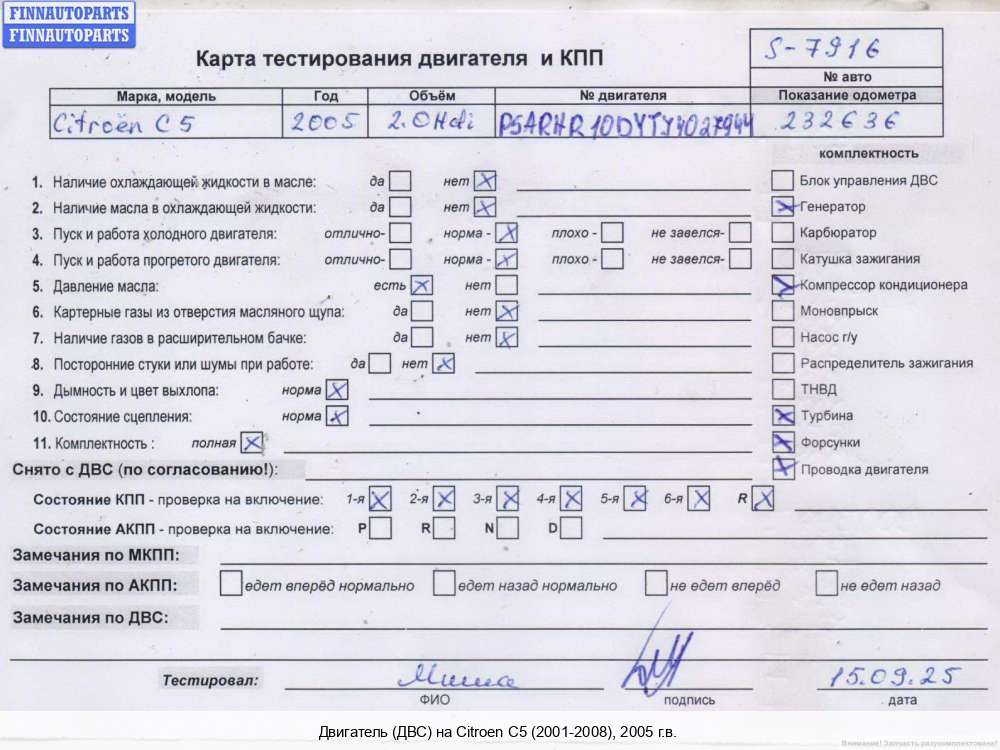 FINNAUTOPARTS
FINNAUTOPARTS
Карта тестирования двигателя и КПП
S-7916
№ авто
Марка, модель Год Объём № двигателя Показание одометра
Citroën C5 2005 2.0Hdi 232636
комплектность
1. Наличие охлаждающей жидкости в масле: да нет Блок управления ДВС
2. Наличие масла в охлаждающей жидкости: да нет Генератор
3. Пуск и работа холодного двигателя: отлично- норма - плохо - не завелся- Карбюратор
4. Пуск и работа прогретого двигателя: отлично- норма - плохо - не завелся- Катушка зажигания
5. Давление масла: есть нет Компрессор кондиционера
6. Картерные газы из отверстия масляного щупа: да нет Моновпрыск
7. Наличие газов в расширительном бачке: да нет Насос г/у
8. Посторонние стуки или шумы при работе: да нет Распределитель зажигания
9. Дымность и цвет выхлопа: норма ТНВД
10. Состояние сцепления: норма Турбина
11. Комплектность : полная Форсунки
Снято с ДВС (по согласованию!): Проводка двигателя
Состояние КПП - проверка на включение: 1-я 2-я 3-я 4-я 5-я 6-я R
Состояние АКПП - проверка на включение: P R N D
Замечания по МКПП:
Замечания по АКПП: едет вперёд нормально едет назад нормально не едет вперёд не едет назад
Замечания по ДВС:
Тестировал: Миша 15.09.25
ФИО подпись дата
Двигатель (ДВС) на Citroen C5 (2001-2008), 2005 г.в.
Внимание! Запчасть разукомплектована!